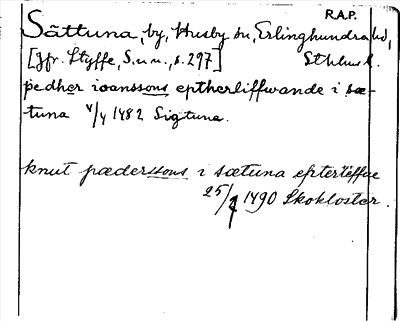 R.A.P.
Sättuna, by, Husby sn, Erlinghundra hd,
[jfr. Styffe, S. u. u., s. 297] Sthlms l.
pedher ioanssons eptherliffwande i sæ-
tuna V/4 1482 Sigtuna.
knut pæderssons i sætuna epterleffue
25/7 1490 Skokloster.